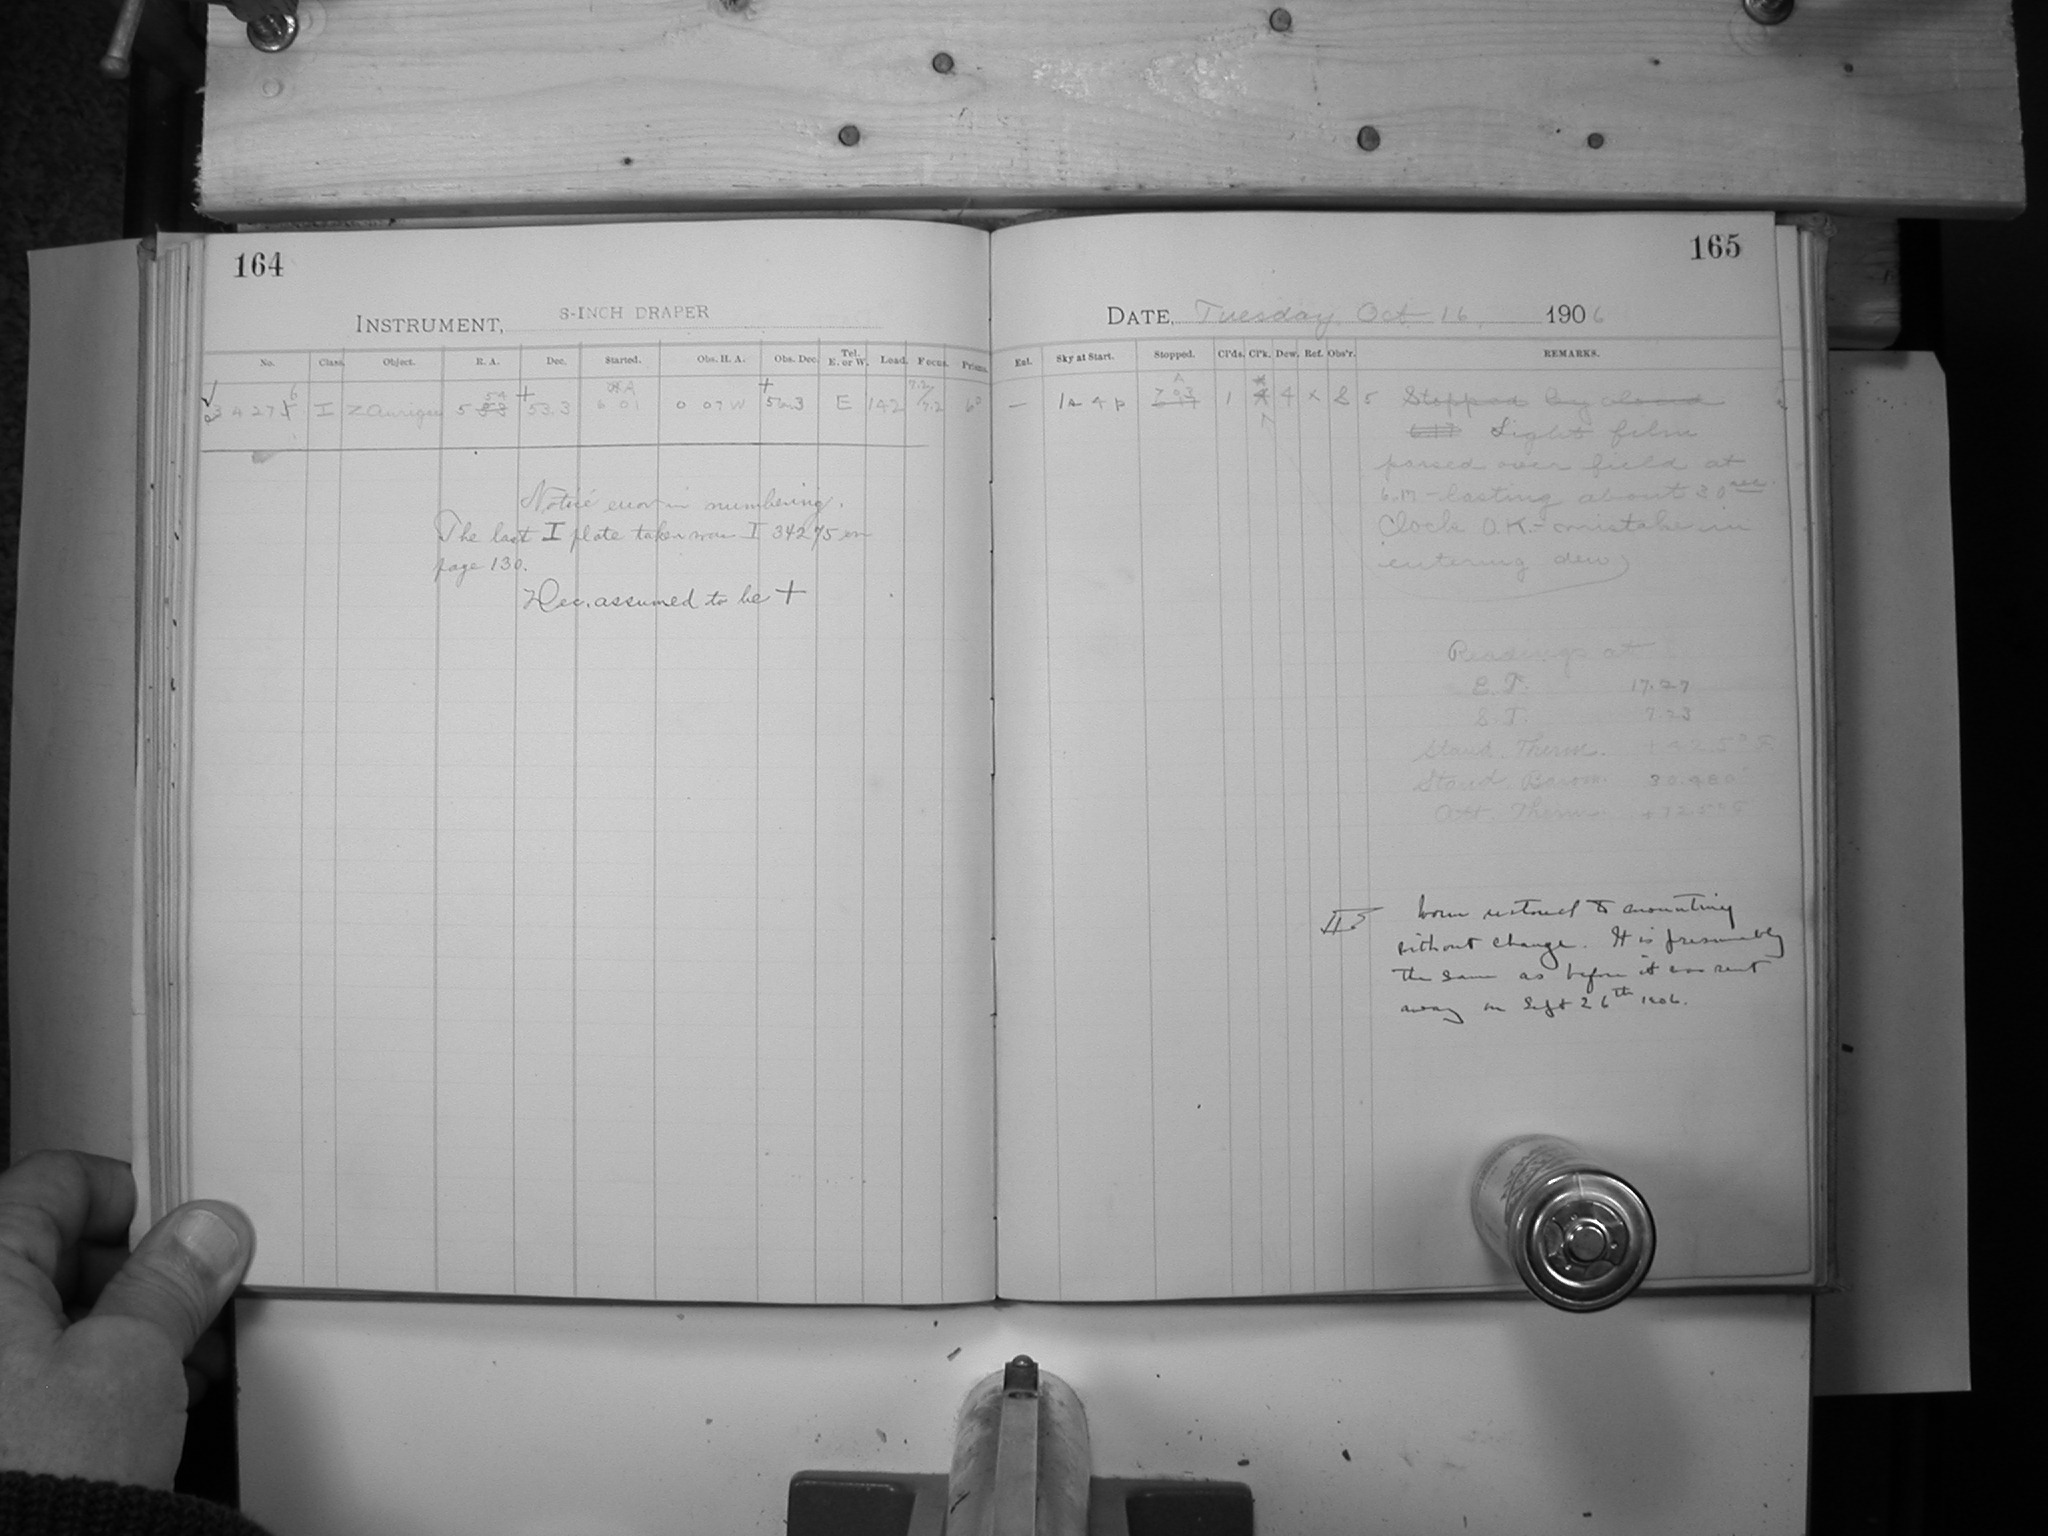 164
INSTRUMENT, 8-INCH DRAPER
No. Class. Object. R. A. Dec. Started. Obs. H. A. Obs. Dec. Tel. E. or W. Load. Focus. Prisms.
34275 6 I Z Aurigae 5 54 + 53.3 6 01 0 07 W + 56.3 E 142 7.2 / 7.2 6°
Notice error in numbering.
The last I plate taken was I 34275 on
page 130.
Dec. assumed to be +
165
DATE, Tuesday, Oct. 16, 1906
Ent. Sky at Start. Stopped. Cl'ds. Cl'k. Dew. Ref. Obs'r. REMARKS.
— 1a 4p 7 03 1 4 x S 5 Stopped by cloud
6.17 Light film
passed over field at
6.17 - lasting about 30 sec.
Clock O.K. - mistake in
entering dew
Readings at
E. T. 17.27
S. T. 7.23
Stand. Therm.
Stand. Barom. 30.480
Att. Therm. +72.5° F
Worm restored to mounting
without change. It is presumably
the same as before it was sent
away on Sept 26th 1906.